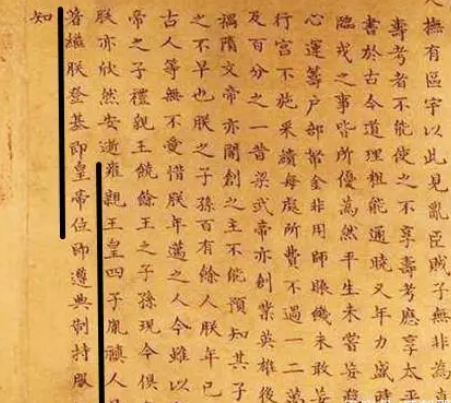 人撫有區宇以此見亂臣賊子無非為真
壽考者不能使之不享壽考應享太平
書於古今道理粗能通曉又年力盛時
臨戎之事皆所優為然平生未嘗妄殺
心運籌戶部帑金非用師賑饑未敢妄
行宮不施采繢每處所費不過一二萬
及百分之一昔梁武帝亦創業英雄後
禍隋文帝亦開創之主不能預知其子
之不早也朕之子孫百有餘人朕年已
古人等無不愛惜朕年邁之人今雖以
帝之子禮親王饒餘王之子孫現今俱
朕亦欣然安逝雍親王皇四子胤禛人
著繼朕登基即皇帝位即遵典制持服
知